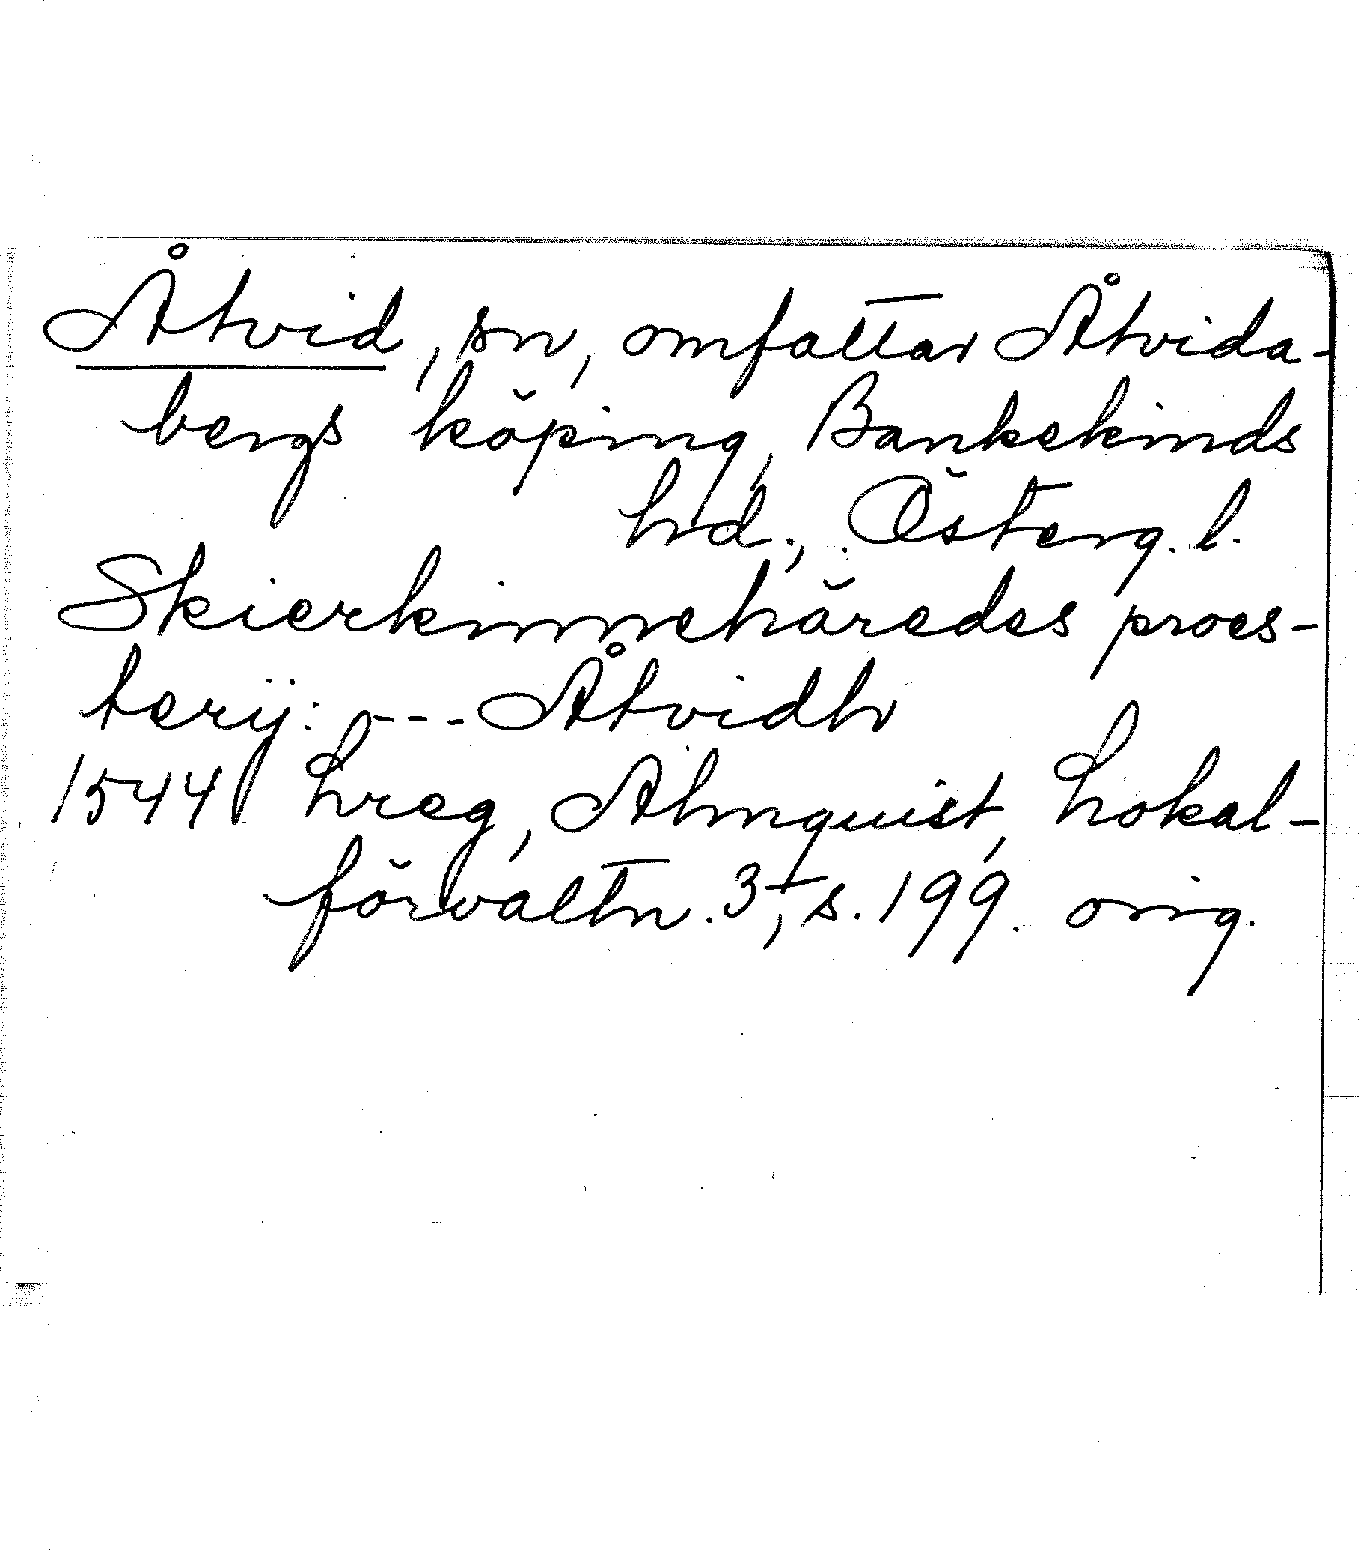 Åtvid, sn, omfattar Åtvida-
bergs köping, Bankekinds
hd., Österg. l.
Skierkinnehäredes proes-
terij: --- Åtvidh
1544 Lreg, Almquist, Lokal-
förvaltn. 3, s. 199. orig.